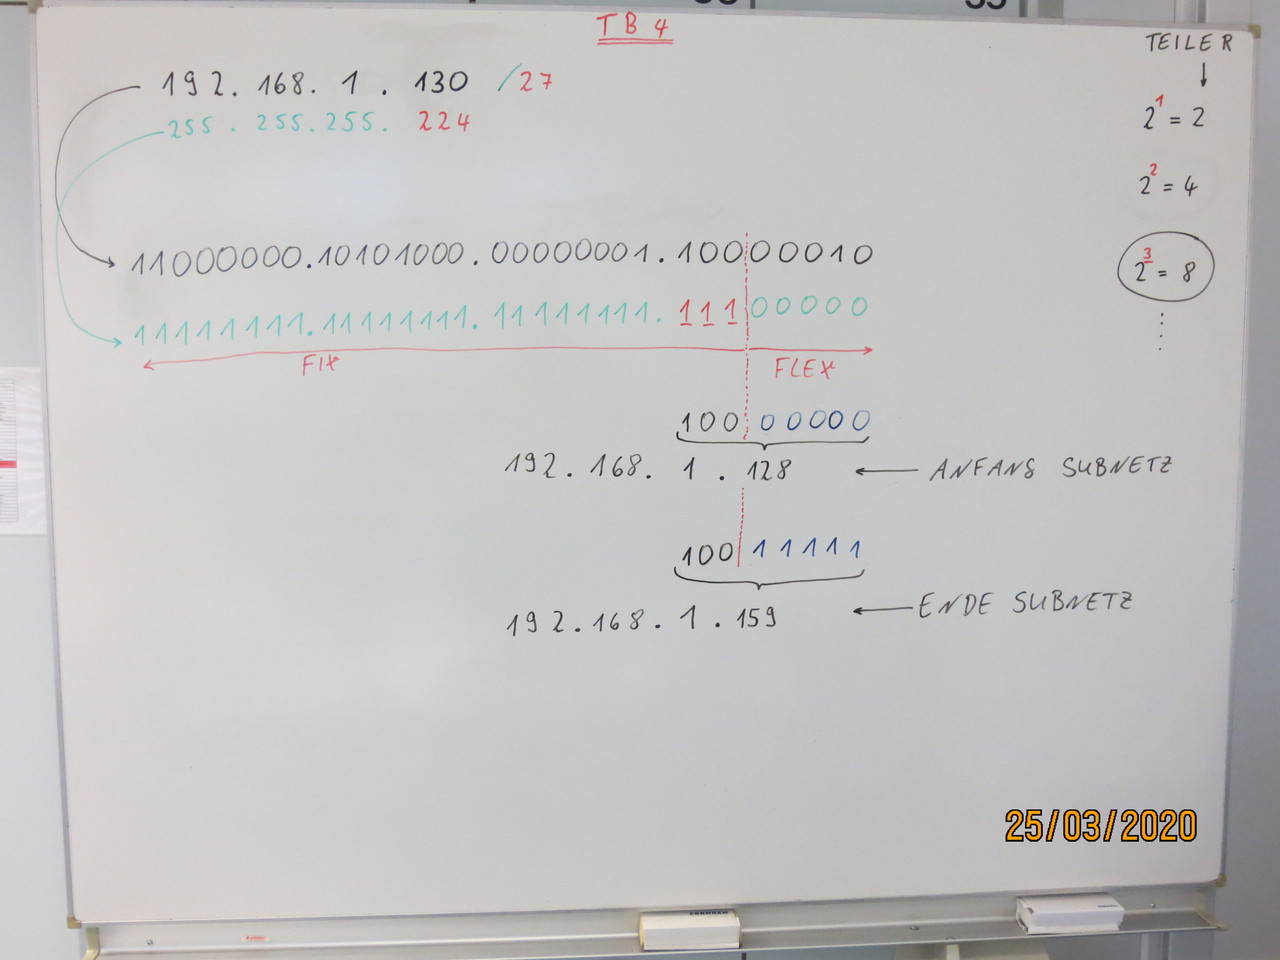 TB 4
TEILER
192. 168. 1 . 130 /27
255 . 255.255. 224
2^1 = 2
2^2 = 4
2^3 = 8
11000000.10101000.00000001.10000010
11111111.11111111.11111111.11100000
FIX FLEX
100 00000
192. 168. 1 . 128 ← ANFANG SUBNETZ
100 11111
192.168. 1 . 159 ← ENDE SUBNETZ
25/03/2020